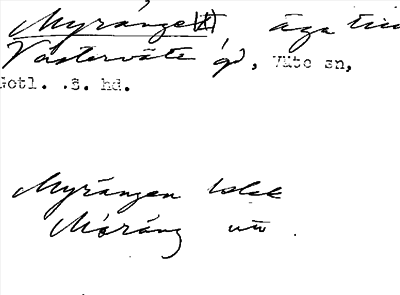 Myränge, äga till
Västerväte gd, Väte sn,
Gotl. .s. hd.
Myrängen
Möräng utt.